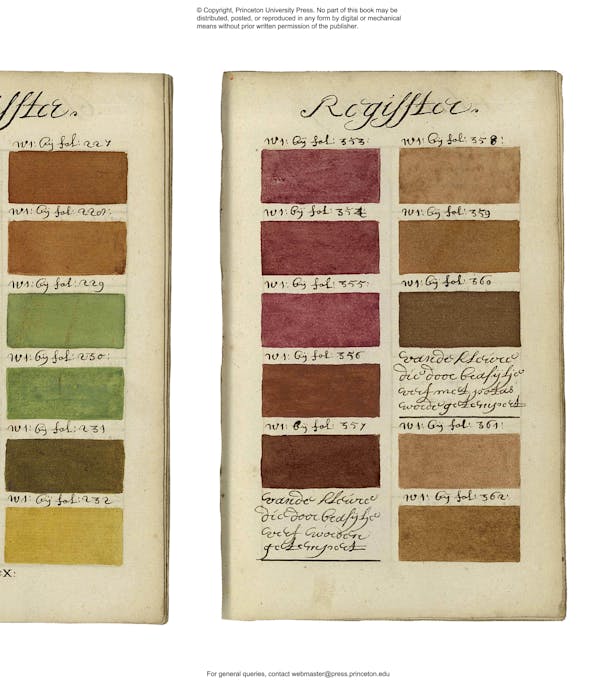 © Copyright, Princeton University Press. No part of this book may be
distributed, posted, or reproduced in any form by digital or mechanical
means without prior written permission of the publisher.
N1: bÿ fol: 227
N1: bÿ fol: 228:
N1: bÿ fol: 229
N1: bÿ fol: 230:
N1: bÿ fol: 231
N1: bÿ fol: 232
X:
Regiſſter.
N1: bÿ fol: 353:
N1: bÿ fol: 354
N1: bÿ fol: 355:
N1: bÿ fol: 356
N1: bÿ fol: 357
vande kleure
die door brasylje
verf worden
getempert
N1: bÿ fol: 358:
N1: bÿ fol: 359
N1: bÿ fol: 360
vande kleure
die door brasylje
verf met potas
worde getempert
N1: bÿ fol: 361:
N1: bÿ fol: 362:
For general queries, contact webmaster@press.princeton.edu